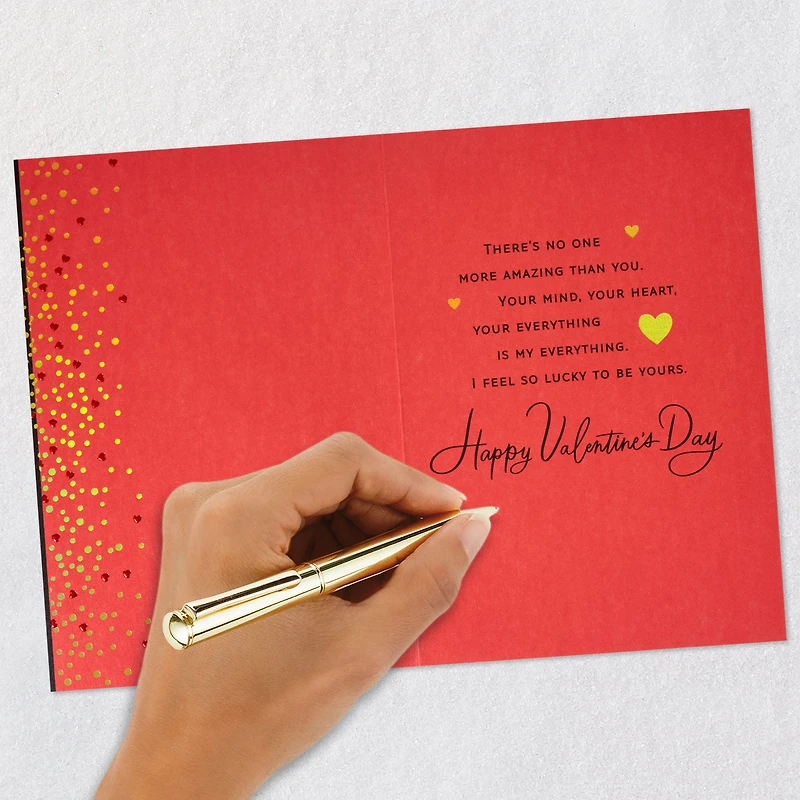 THERE'S NO ONE
MORE AMAZING THAN YOU.
YOUR MIND, YOUR HEART,
YOUR EVERYTHING
IS MY EVERYTHING.
I FEEL SO LUCKY TO BE YOURS.
Happy Valentine's Day